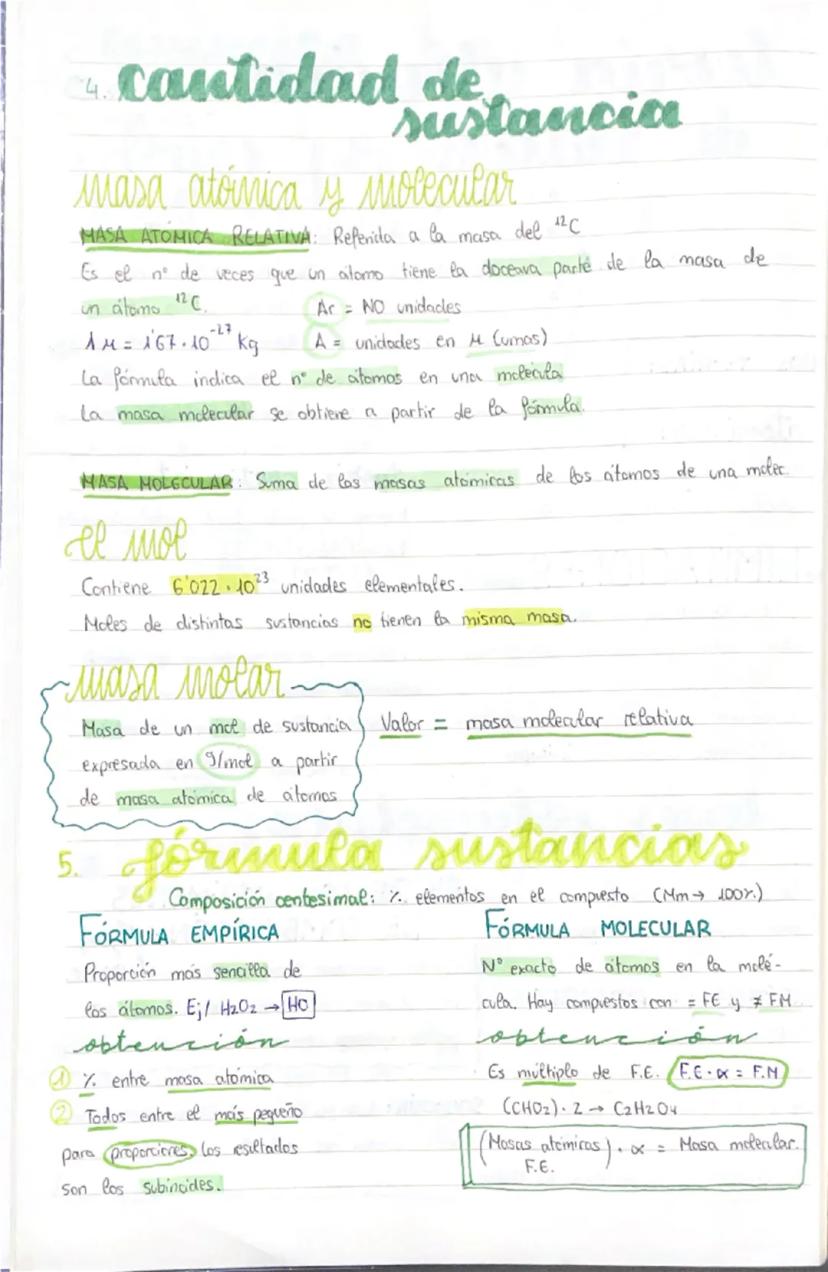 4. cantidad de
sustancia
masa atómica y molecular
MASA ATÓMICA RELATIVA: Referida a la masa del ¹²C
Es el nº de veces que un átomo tiene la doceava parte de la masa de
un átomo ¹²C. Ar = NO unidades
1 μ = 1'67·10⁻²⁷ kg A = unidades en μ (umas)
La fórmula indica el nº de átomos en una molécula
La masa molecular se obtiene a partir de la fórmula.
MASA MOLECULAR: Suma de las masas atómicas de los átomos de una moléc.
el mol
Contiene 6'022·10²³ unidades elementales.
Moles de distintas sustancias no tienen la misma masa.
masa molar
Masa de un mol de sustancia Valor = masa molecular relativa
expresada en g/mol a partir
de masa atómica de átomos
5. fórmula sustancias
Composición centesimal: % elementos en el compuesto (Mm → 100%)
FÓRMULA EMPÍRICA
Proporción más sencilla de
los átomos. Ej/ H2O2 → HO
obtención
1 % entre masa atómica
2 Todos entre el más pequeño
para proporciones, los resultados
son los subíndices.
FÓRMULA MOLECULAR
Nº exacto de átomos en la molé-
cula. Hay compuestos con = FE y ≠ FM
obtención
Es múltiplo de F.E. F.E·α = F.M
(CHO2)·2 → C2H2O4
(Masas atómicas)·α = Masa molecular.
F.E.